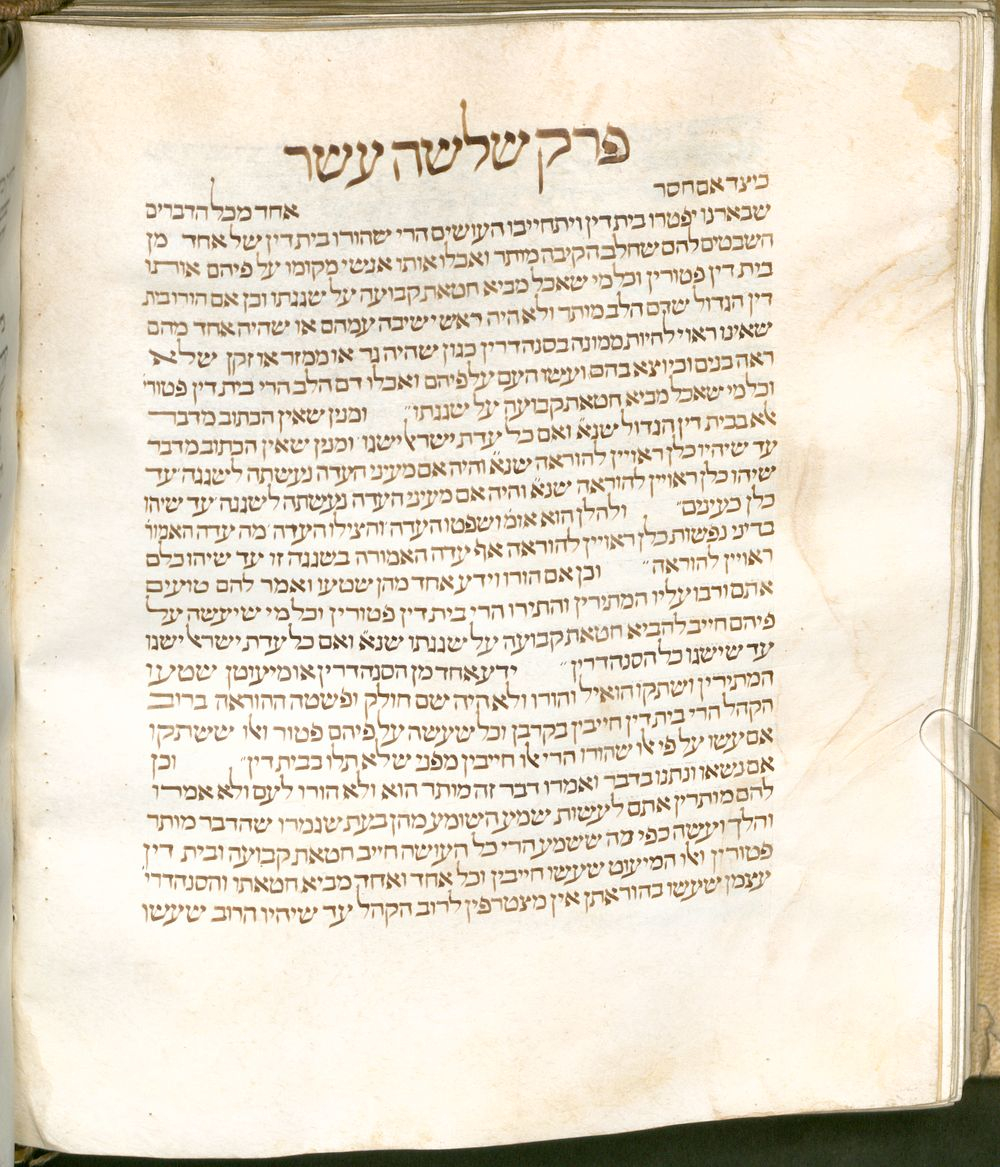 פרק שלשה עשר
כיצד אם חסר
אחד מכל הדברים
שבארנו יפטרו בית דין ויתחייבו העושים הרי שהורו בית דין של אחד מן
השבטים להם שחלב הקיבה מותר ואכלו אותו אנשי מקומו על פיהם אותו
בית דין פטורין וכל מי שאכל מביא חטאת קבועה על שגגתו וכן אם הורו בית
דין הגדול שדם הלב מותר ולא היה ראש ישיבה עמהם או שהיה אחד מהם
שאינו ראוי להיות ממונה בסנהדרין כגון שהיה גר או ממזר או זקן שלא
ראה בנים וכיוצא בהם ועשו העם על פיהם ואכלו דם הלב הרי בית דין פטורי׳
וכל מי שאכל מביא חטאת קבועה על שגגתו״ ומנין שאין הכתוב מדבר
אלא בבית דין הגדול שנ׳ ואם כל עדת ישראל ישגו ומנין שאין הכתוב מדבר
עד שיהיו כלן ראויין להוראה שנ׳ והיה אם מעיני העדה נעשתה לשגגה עד
שיהו כלן ראויין להוראה שנ׳ והיה אם מעיני העדה נעשתה לשגגה עד שיהו
כלן כעינים״ ולהלן הוא אומ׳ ושפטו העדה והצילו העדה מה עדה האמור׳
בדיני נפשות כלן ראויין להוראה אף עדה האמורה בשגגה זו עד שיהו כלם
ראויין להוראה״ וכן אם הורו וידע אחד מהן שטעו ואמר להם טועים
אתם ורבו עליו המתירין והתירו הרי בית דין פטורין וכל מי שיעשה על
פיהם חייב להביא חטאת קבועה על שגגתו שנ׳ ואם כל עדת ישראל ישגו
עד שישגו כל הסנהדרין״ ידע אחד מן הסנהדרין או מיעוטן שטעו
המתירין ושתקו הואיל והורו ולא היה שם חולק ופשטה ההוראה ברוב
הקהל הרי בית דין חייבין בקרבן וכל שעשה על פיהם פטור ואלו ששתקו
אם עשו על פי אלו שהורו הרי אלו חייבין מפני שלא תלו בבית דין״ וכן
אם נשאו ונתנו בדבר ואמרו דבר זה מותר הוא ולא הורו לעם ולא אמרו
להם מותרין אתם לעשות ושמע השומע מהן בעת שגמרו שהדבר מותר
והלך ועשה כפי מה ששמע הרי כל העושה חייב חטאת קבועה ובית דין
פטורין ואלו המיעוט שעשו חייבין וכל אחד ואחד מביא חטאתו והסנהדרי׳
עצמן שעשו בהוראתן אין מצטרפין לרוב הקהל עד שיהיו הרוב שעשו